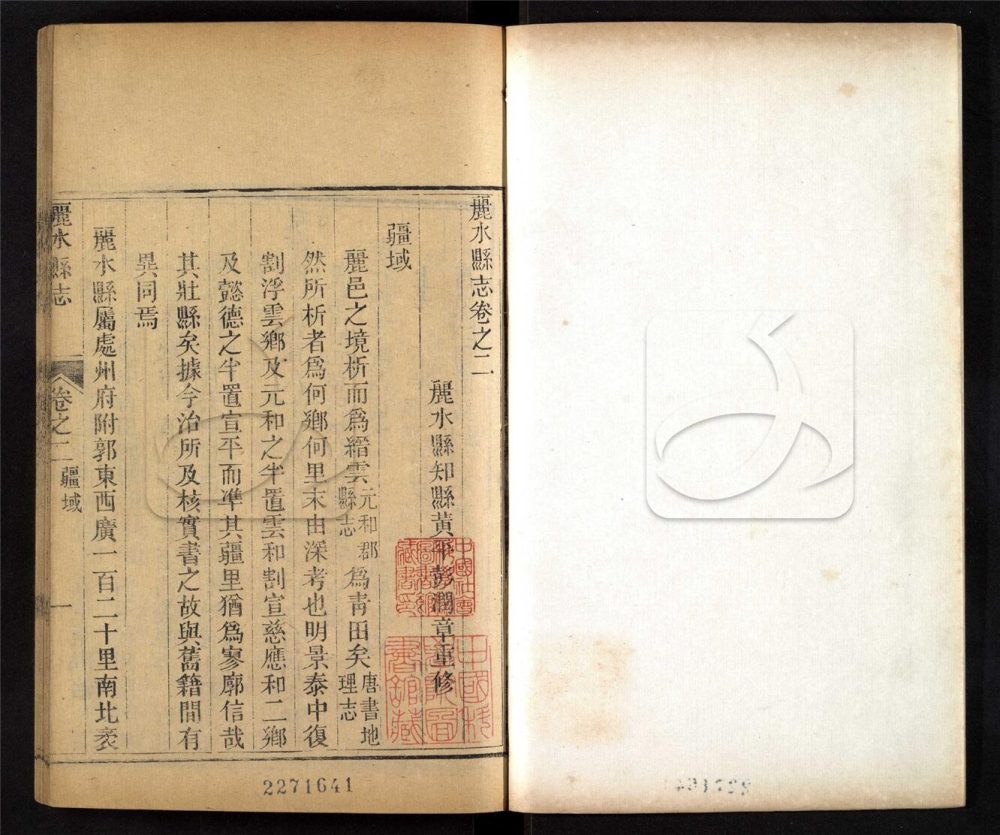 麗水縣志卷之二
麗水縣知縣黃平彭潤章重修
疆域
麗邑之境析而爲縉雲元和郡縣志爲靑田矣唐書地理志
然所析者爲何鄉何里末由深考也明景泰中復
割浮雲鄉及元和之半置雲和割宣慈應和二鄉
及懿德之半置宣平而準其疆里猶爲寥廓信哉
其壯縣矣據今治所及核實書之故與舊籍間有
異同焉
麗水縣屬處州府附郭東西廣一百二十里南北袤
麗水縣志
卷之二
疆域
一
中國社會
圖書
藏書印
中國科
圖
書館藏
2271641